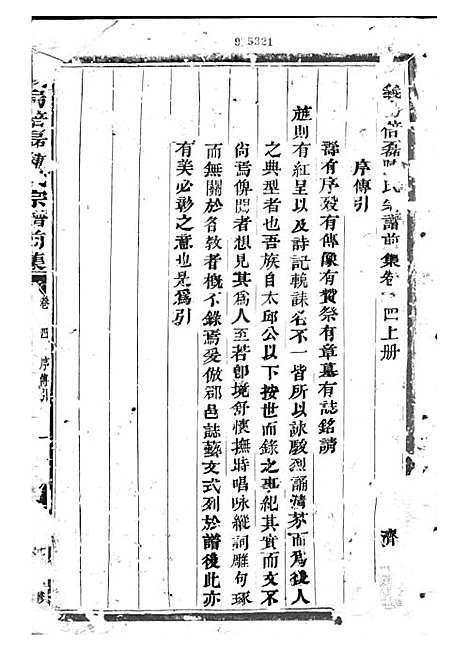 9 5321
義烏倍磊陳氏宗譜前集卷 四上册
序傳引 濟
譜有序發有傳像有贊祭有章墓有誌銘請
旌則有紅呈以及詩記輓誄名不一皆所以詠駿烈誦清芬而為後人
之典型者也吾族自太邱公以下按世而錄之事紀其實而文不
尚焉俾閱者想見其為人至若卽境舒懷撫時唱咏縱詞雕句琢
而無關於名教者概不錄焉爰倣郡邑誌藝文式列於譜後此亦
有美必彰之意也是為引
烏倍磊陳氏宗譜前集
卷 四 序傳引 一
修